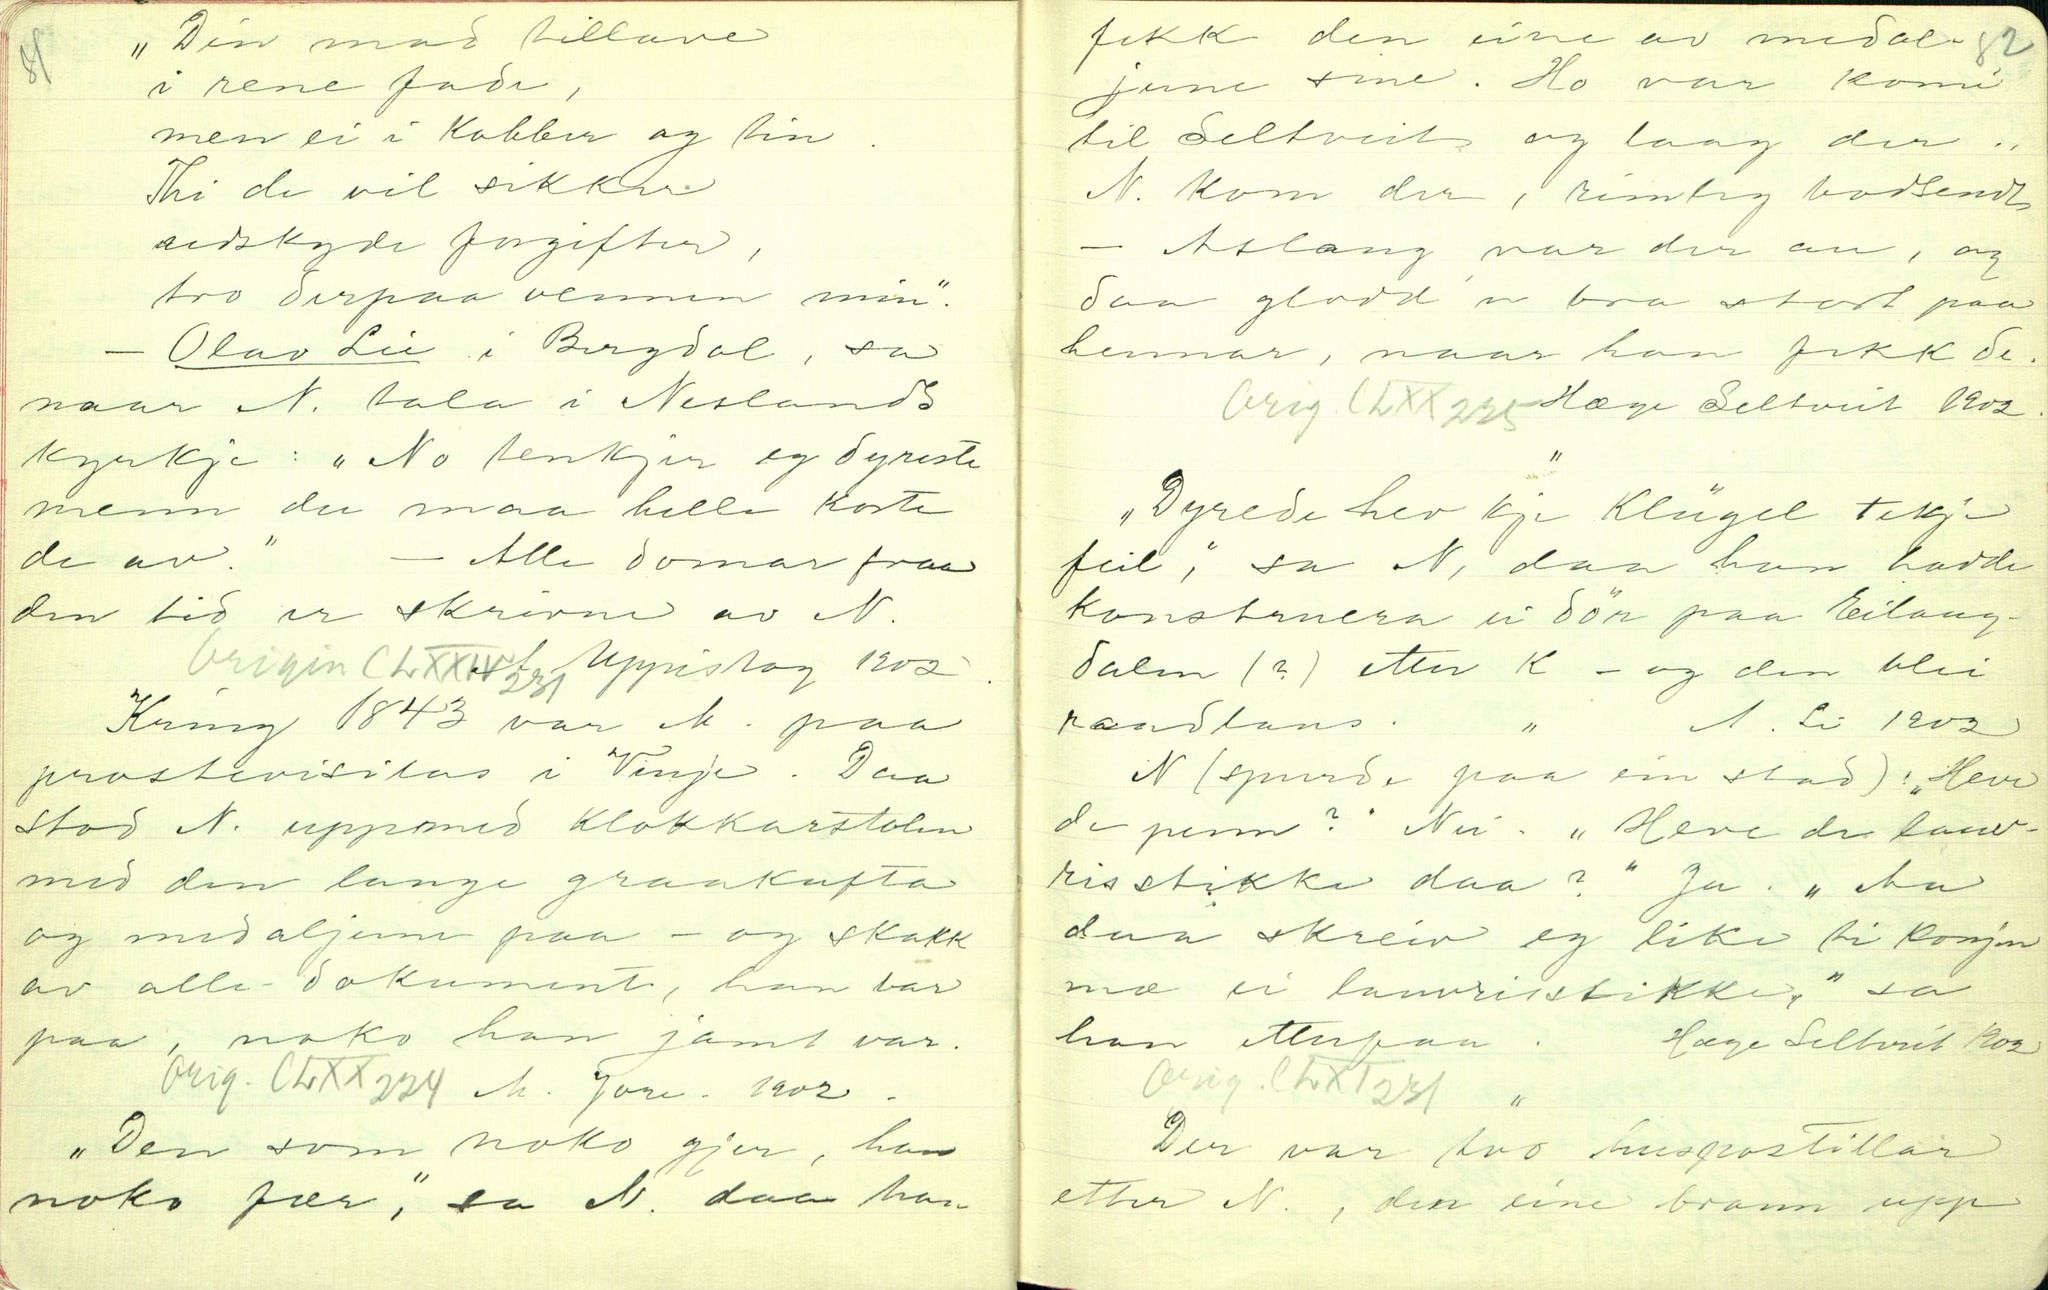 81
„Din mad tillave
i rene fade,
men ei i Kobber og tin.
Thi de vil sikker
udskyde forgifter,
tro derpaa vennen min".
– Olav Lii i Bergdal, sa
naar N. tala i Neslands
kyrkje: „No tenkjer eg dyreste
menn du maa helle korte
de av." – Alle domar fraa
den tid er skrivne av N.
Origin CLXXIV 231 Uppistog 1902.
Kring 1843 var M. paa
prostevisitas i Vinje. Daa
stod N. uppmed Klokkarstolen
med den lange graakufta
og medaljune paa – og skakk
av alle dokument, han bar
paa, noko han jamt var.
Orig. CLXX 224 M. Jore. 1902.
„Den som noko gjer, han
noko fær," sa N. daa han
82
fekk den eine av medal-
june sine. Ho var komi
til Seltveit og laag der..
N. kom der, rimleg bodsendt
– Aslaug var der au, og
daa glodd'n bra stort paa
hennar, naar han fekk de.
Orig. CLXX 225 Hæge Seltveit 1902.
"
„Dyrede hev kje Klügel tekje
feil," sa N, daa han hadde
konstruera ei dör paa Eilaug-
dalen (?) etter K – og den blei
raadlaus. " A. Li 1902
N (spurde paa ein stad): „Heve
de penn?" Nei. „Heve de lauv-
risstikke daa?" Ja. „Aa
daa skreiv eg like ti konjen
mæ ei lauvrisstikke," sa
han ettepaa. Hæge Seltveit 1902
Orig. CLXXI 231 "
Der var tvo huspostillar
etter N., den eine brann upp